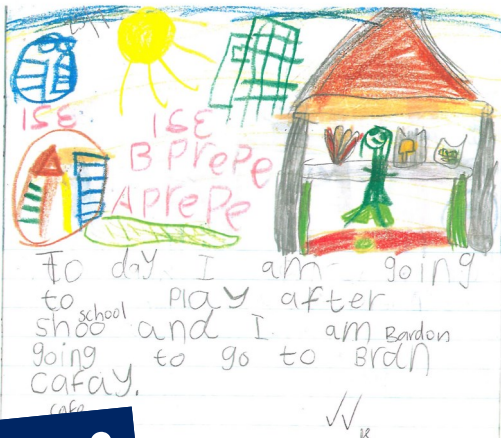 ISE
ISE
B PrePe
APrePe
To day I am going
to play after
shoo school and I am Bardon
going to go to Bran
cafay.
cafe